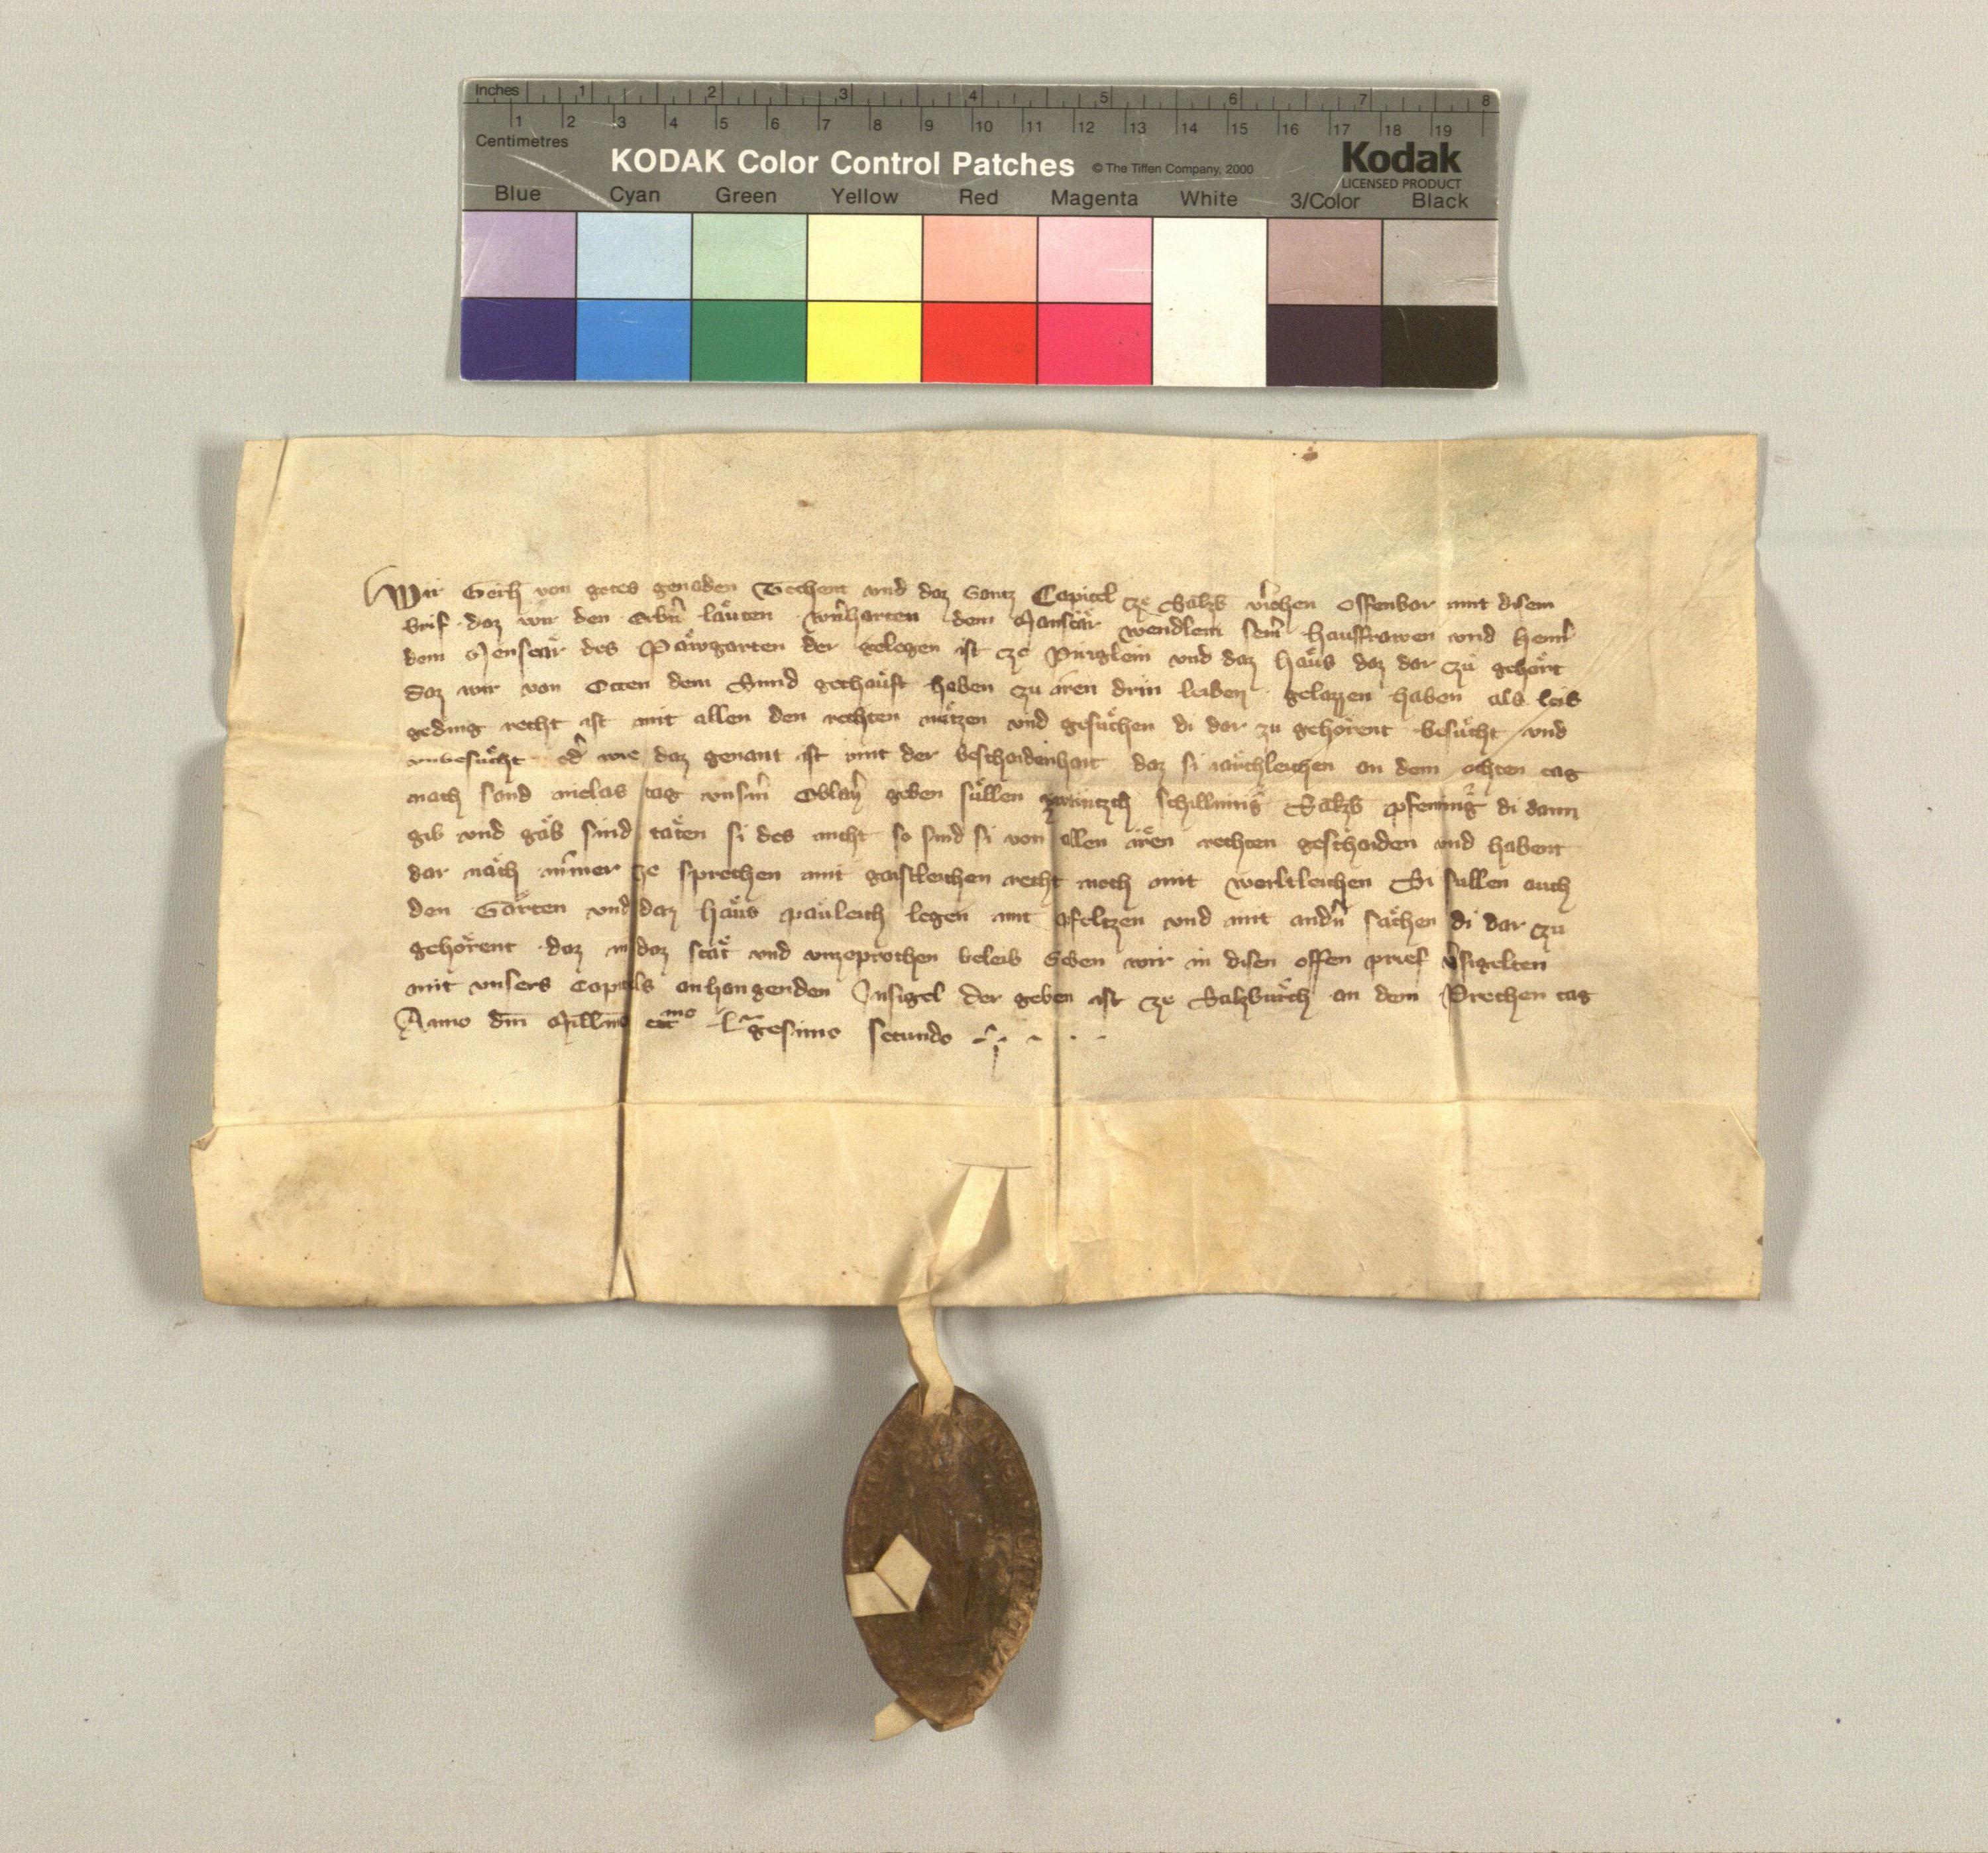 Inches 1 2 3 4 5 6 7 8
1 2 3 4 5 6 7 8 9 10 11 12 13 14 15 16 17 18 19
Centimetres
KODAK Color Control Patches © The Tiffen Company, 2000 Kodak
LICENSED PRODUCT
Blue Cyan Green Yellow Red Magenta White 3/Color Black
Wir von gotes genaden Techent vnd daz Gantz Capitel ze Salzb v̓iehen offenbar mit disem
brif daz wir den erb̓n laͤuten dem wendlem sein̓ hausfrawen vnd
dem des Paͤwgarten der gelegen ist cze Puͤrglein vnd daz haͤus daz dar czu gehoͤrt
daz wir von Otten dem gechaͤuft haben czu iren drin leiben gelazzen haben als leib
geding recht ist mit allen den rechten nuͤtzen vnd gesuͤchen di dar zu gehoͤrent besuͤcht vnd
vnbesuͤcht od̓ wie daz genant ist mit der beschaidenhait daz si iaͤrchleichen an dem achten tag
nach sand niclas tag vnserm Oblay̓ geben suͤllen zwaintzch schilling Salzb pfenning di dann
gib vnd gaͤb sind taͤten si des nicht so sind si von allen iren rechten geschaiden vnd habent
dar nach nim̓mer ze sprechen mit gaistleichen recht noch mit werltleichen Si sullen auch
den Garten vnd daz haͤus paͤuleich legen mit pfeltzen vnd mit and̓n sachen di dar czu
gehoͤrent daz in daz staͤt vnd vnzeprochen beleib Geben wir in disen offen prief v̓sigelten
mit vnsers Capitels anhangenden Insigel der geben ist ze Salzburch an dem Prechen tag
Anno dm̄ Millm̄o gesimo secundo